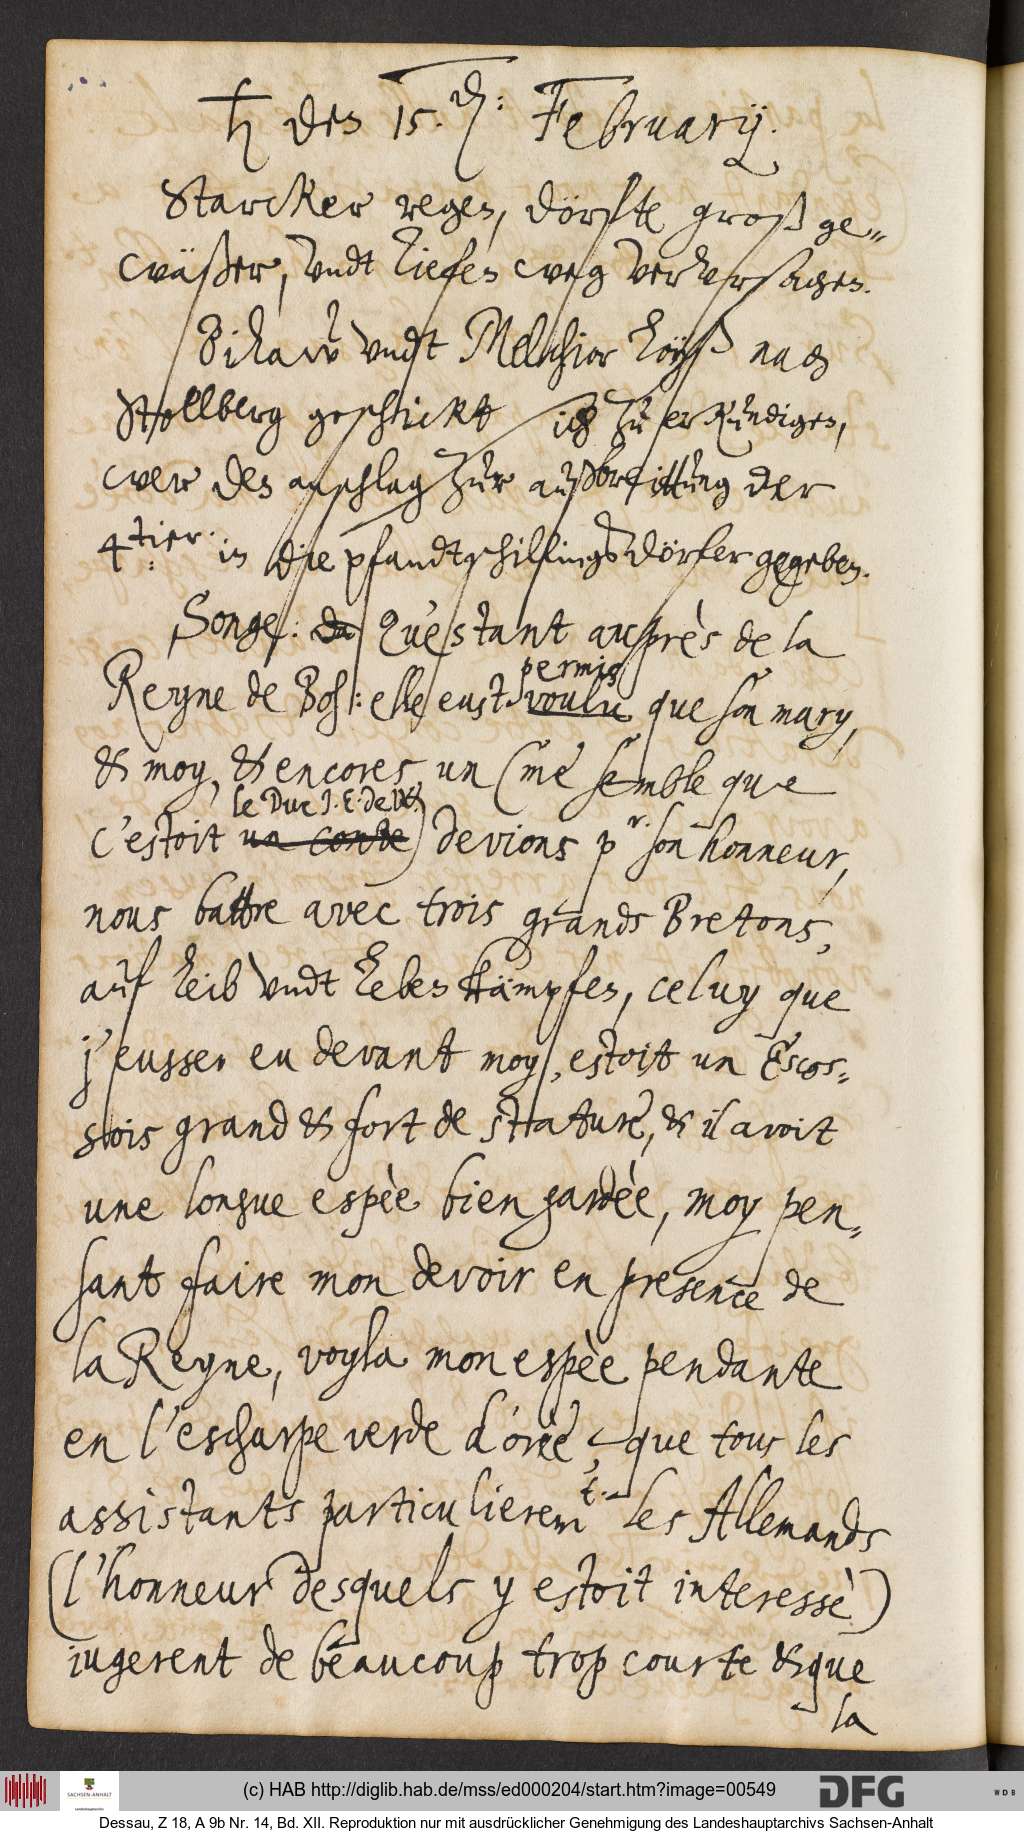 ♄ den 15. d: February.
Starcker regen, dörfte groß ge„
wäßer, vndt tiefen weg verhrsachen.
vndt Melchior Loyß nach
Stollberg geschickt sich zu erkundigen,
wer den anschlag zur außbreittung der
4tier. in die pfandtschillingsdörfer gegeben.
Songe: da Qu'estant auprès de la
permis
Reyne de Boh: elle eust voulu que son mary,
& moy, & encores un (me semble que
le Duc J. E: de W.
c'estoit un conte) devions pr. son honneur,
nous battre avec trois grands Bretons,
auf leib vndt leben kämpfen, celuy que
j'eusse eu devant moy, estoit un Escos-
sois grand & fort de stature, & il avoit
une longue espèe bien gardèe, moy pen„
sant faire mon devoir en presence de
la Reyne, voyla mon espèe pendante
en l'escharpe verde d'orèe, que tous les
assistants particulieremt. les Allemands
(l'honneur desquels y estoit interessè)
iugerent de beaucoup trop courte & que
la
(c) HAB http://diglib.hab.de/mss/ed000204/start.htm?image=00549
SACHSEN-ANHALT
DFG
WDB
Dessau, Z 18, A 9b Nr. 14, Bd. XII. Reproduktion nur mit ausdrücklicher Genehmigung des Landeshauptarchivs Sachsen-Anhalt